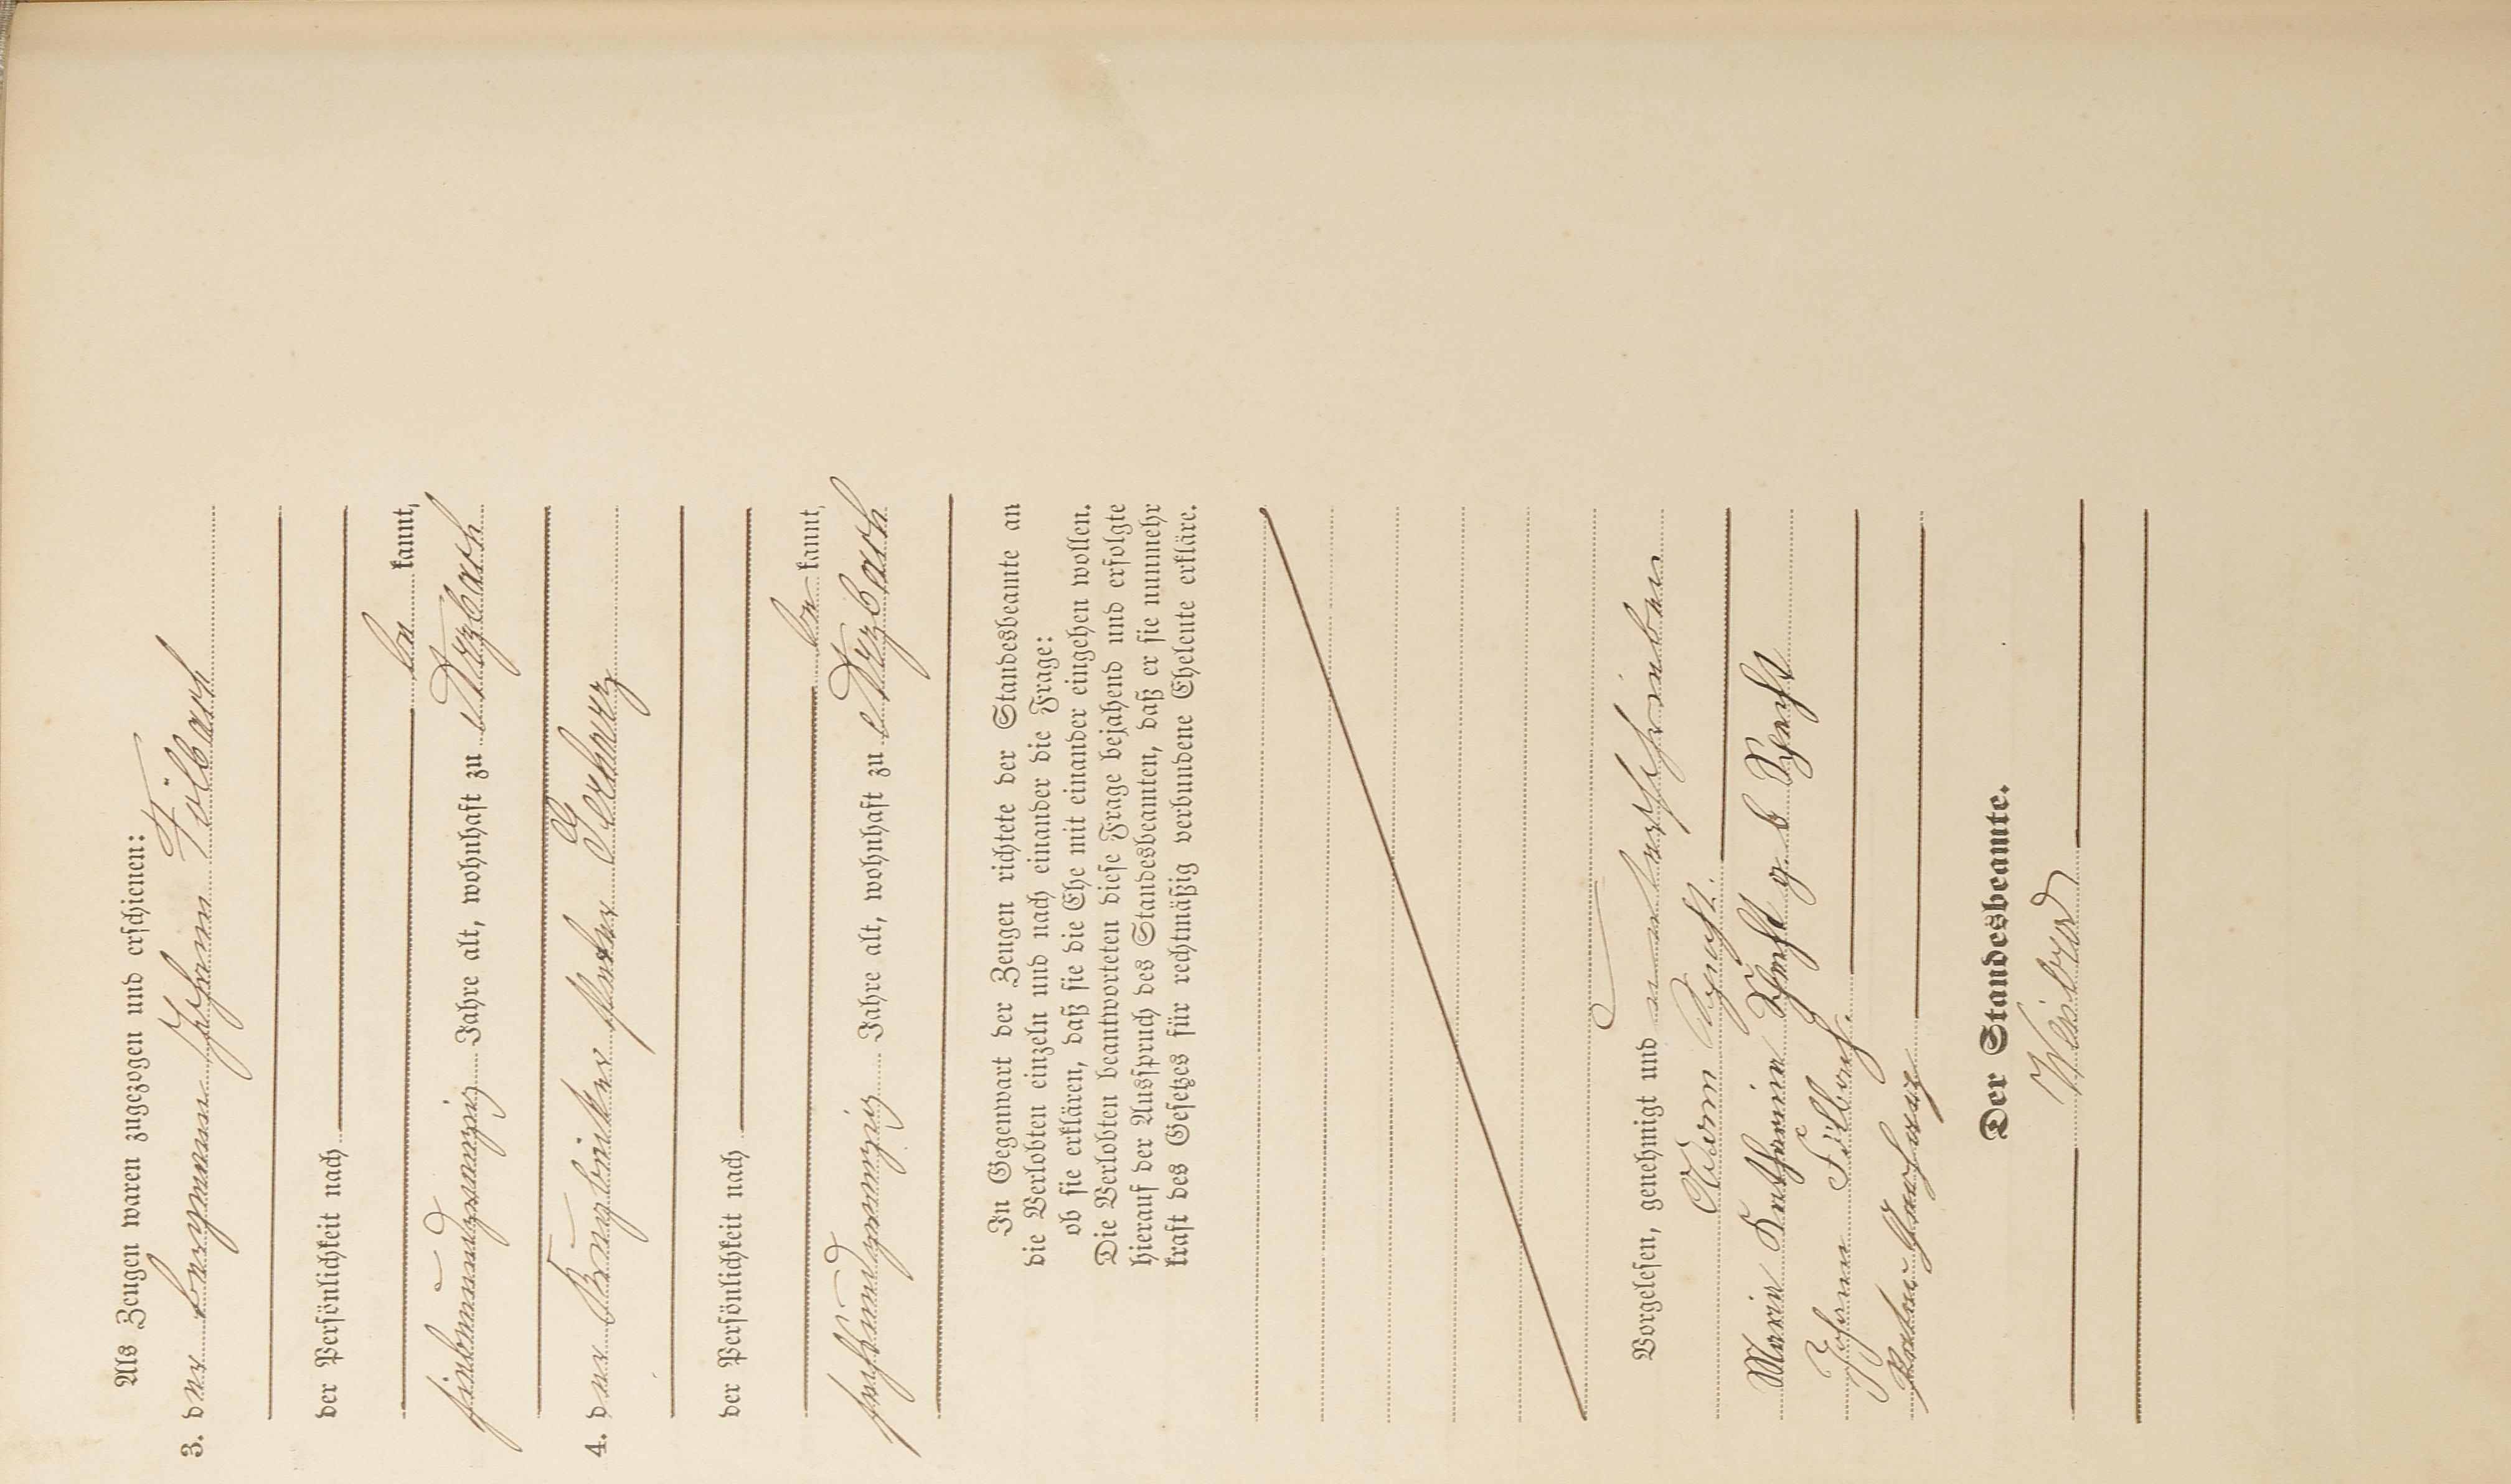 Als Zeugen waren zugezogen und erschienen:
3. der Bergmann Johann Fölbach
der Persönlichkeit nach
be kannt,
siebenundzwanzig Jahre alt, wohnhaft zu Arzbach
4. der
der Persönlichkeit nach
be kannt,
sechsundzwanzig Jahre alt, wohnhaft zu Arzbach
In Gegenwart der Zeugen richtete der Standesbeamte an
die Verlobten einzeln und nach einander die Frage:
ob sie erklären, daß sie die Ehe mit einander eingehen wollen.
Die Verlobten beantworteten diese Frage bejahend und erfolgte
hierauf der Ausspruch des Standesbeamten, daß er sie nunmehr
kraft des Gesetzes für rechtmäßig verbundene Eheleute erkläre.
Vorgelesen, genehmigt und unterschrieben
Adam Specht.
Marie Katharine Specht g. b. Specht
Johann Fölbach.
Der Standesbeamte.